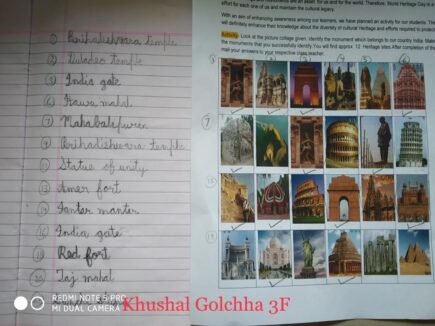 ① Brihadishwara temple
② Duladeo temple
③ India gate
④ Hawa mahal
⑦ Mahabalepuram
⑨ Brihadishwara temple
⑪ Statue of unity
⑬ Amer fort
⑭ Jantar manter
⑯ India gate
⑱ Red fort
⑳ Taj mahal
effort for each one of us and maintain the cultural legacy.
With an aim of enhancing awareness among our learners, we have planned an activity for our students. This
will definitely enhance their knowledge about the diversity of cultural Heritage and efforts required to protect
Activity: Look at the picture collage given. Identify the monument which belongs to our country India. Make
the monuments that you successfully identify. You will find approx. 12 Heritage sites. After completion of the
mail your answers to your respective class teacher.
REDMI NOTE 5 PRO
MI DUAL CAMERA
Khushal Golchha 3F